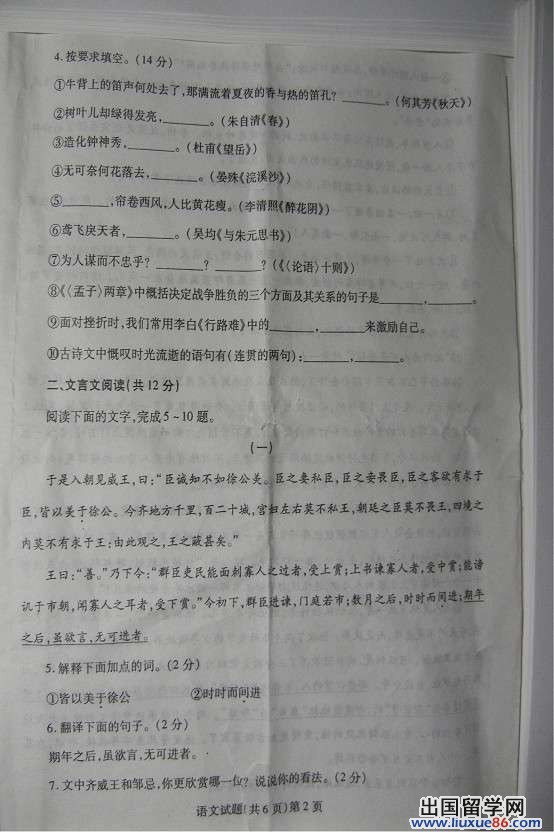 4.按要求填空。(14分)
①牛背上的笛声何处去了,那满流着夏夜的香与热的笛孔?______。(何其芳《秋天》)
②树叶儿却绿得发亮,______。(朱自清《春》)
③造化钟神秀,______。(杜甫《望岳》)
④无可奈何花落去,______。(晏殊《浣溪沙》)
⑤______,帘卷西风,人比黄花瘦。(李清照《醉花阴》)
⑥鸢飞戾天者,______。(吴均《与朱元思书》)
⑦为人谋而不忠乎?______?______?(《〈论语〉十则》)
⑧《〈孟子〉两章》中概括决定战争胜负的三个方面及其关系的句子是______,______。
⑨面对挫折时,我们常用李白《行路难》中的______,______来激励自己。
⑩古诗文中慨叹时光流逝的语句有(连贯的两句):______,______。
二、文言文阅读(共12分)
阅读下面的文字,完成5~10题。
(一)
于是入朝见威王,曰:“臣诚知不如徐公美。臣之妻私臣,臣之妾畏臣,臣之客欲有求于
臣,皆以美于徐公。今齐地方千里,百二十城,宫妇左右莫不私王,朝廷之臣莫不畏王,四境之
内莫不有求于王:由此观之,王之蔽甚矣。”
王曰:“善。”乃下令:“群臣吏民能面刺寡人之过者,受上赏;上书谏寡人者,受中赏;能谤
讥于市朝,闻寡人之耳者,受下赏。”令初下,群臣进谏,门庭若市;数月之后,时时而间进;期年
之后,虽欲言,无可进者。
5.解释下面加点的词。(2分)
①皆以美于徐公 ②时时而间进
6.翻译下面的句子。(2分)
期年之后,虽欲言,无可进者。
7.文中齐威王和邹忌,你更欣赏哪一位?说说你的看法。(2分)
语文试题(共6页)第2页
出国留学网
www.liuxue86.com